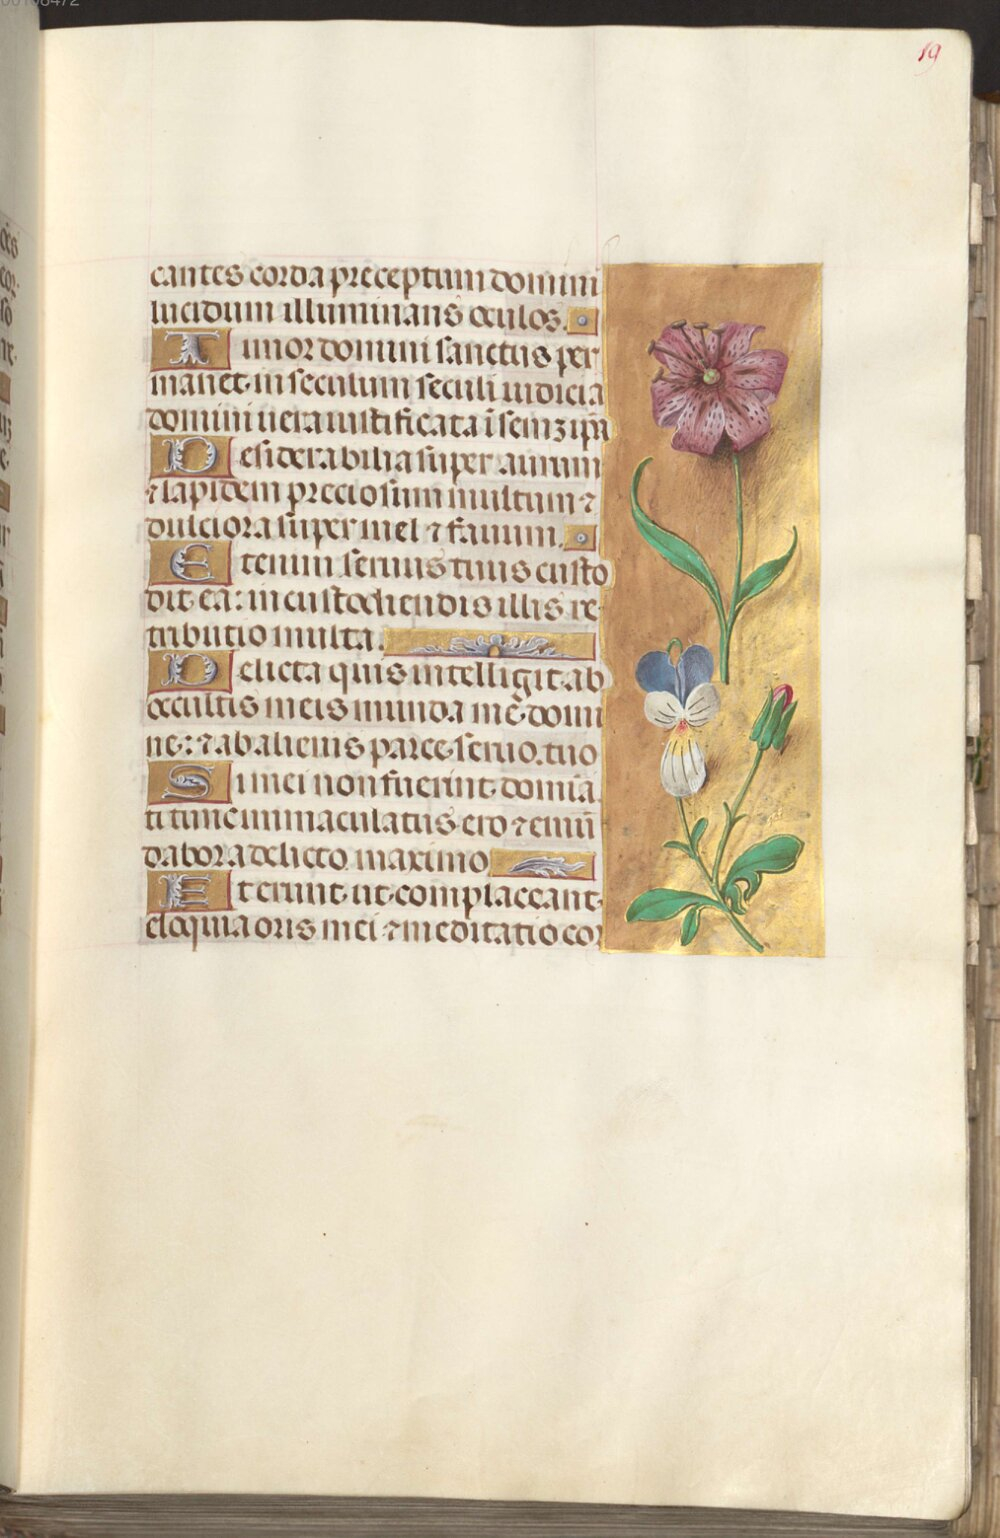 19
cantes corda preceptum domini
lucidum illuminans oculos.
Timor domini sanctus per
manet in seculum seculi iudicia
domini uera iustificata ī semꝫ ip̄a
Desiderabilia super aurum
⁊ lapidem preciosum multum ⁊
dulciora super mel ⁊ fauum.
Etenim seruus tuus custo
dit ea: in custodiendis illis re
tributio multa.
Delicta quis intelligit ab
occultis meis munda mē domi
ne: ⁊ ab alienis parce seruo tuo
Si mei non fuerint domīa
ti tunc immaculatus ero ⁊ emū
dabor a delicto maximo
Et erunt ut complaceant
eloquia oris mei ⁊ meditatio cor